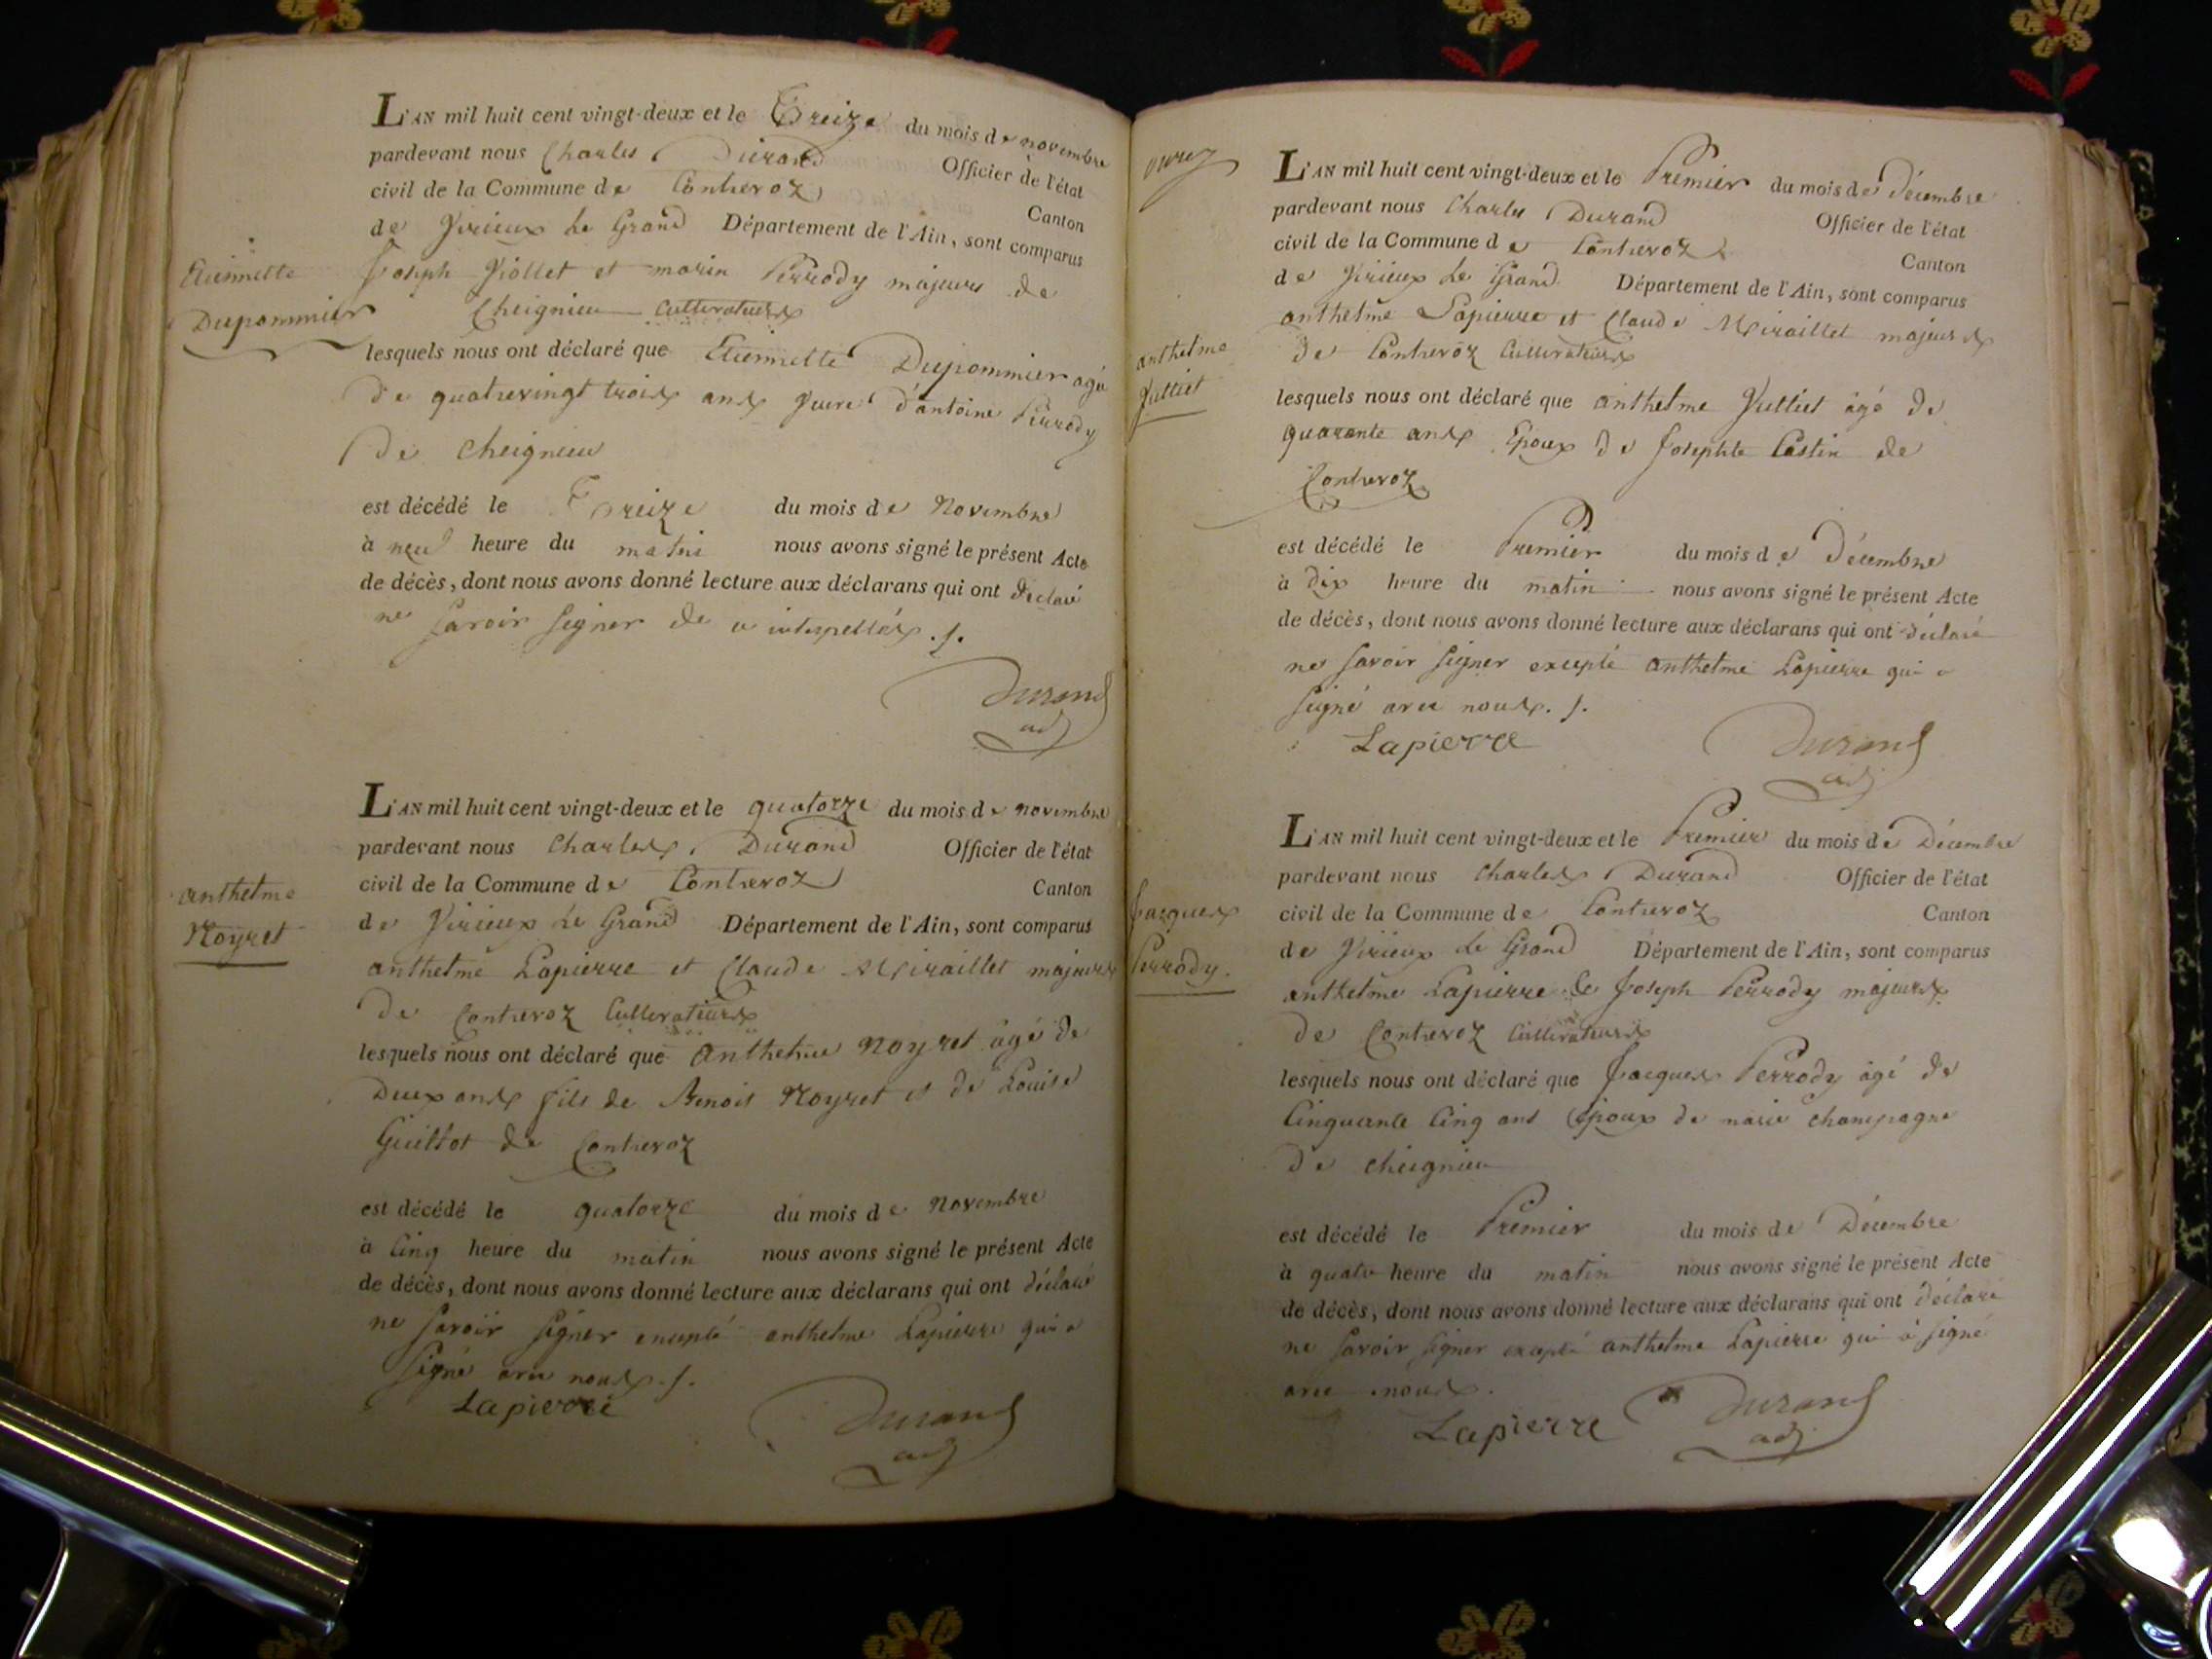 L'AN mil huit cent vingt-deux et le Treize du mois de novembre
pardevant nous Charles Durand Officier de l'état
civil de la Commune de Contrevoz Canton
de Virieux Le Grand Département de l'Ain, sont comparus
Joseph Viollet et marin Perrody majeurs de
Cheignieu Cultivateurs
Etiennette
Dupommier
lesquels nous ont déclaré que Etiennette Dupommier agée
de quatrevingt trois ans veuve d'antoine Perrody
De cheignieu
est décédé le Treize du mois de Novembre
à neuf heure du matin nous avons signé le présent Acte
de décès, dont nous avons donné lecture aux déclarans qui ont déclaré
ne savoir signer de ce interpellés ./.
Durand
adj
L'AN mil huit cent vingt-deux et le quatorze du mois de novembre
pardevant nous Charles Durand Officier de l'état
civil de la Commune de Contrevoz Canton
de Virieux Le Grand Département de l'Ain, sont comparus
anthelme Lapierre et Claude Miraillet majeurs
De Contrevoz Cultivateurs
anthelme
Noyret
lesquels nous ont déclaré que anthelme Noyret âgé de
Deux ans fils de Benoit Noyret et de Louise
Guillot de Contrevoz
est décédé le quatorze du mois de Novembre
à Cinq heure du matin nous avons signé le présent Acte
de décès, dont nous avons donné lecture aux déclarans qui ont déclaré
ne savoir signer excepté anthelme Lapierre qui a
signé avec nous ./.
Lapierre Durand
adj
L'AN mil huit cent vingt-deux et le Premier du mois de Décembre
pardevant nous Charles Durand Officier de l'état
civil de la Commune de Contrevoz Canton
de Virieux Le Grand Département de l'Ain, sont comparus
anthelme Lapierre et Claude Miraillet majeurs
de Contrevoz Cultivateurs
anthelme
Julliet
lesquels nous ont déclaré que anthelme Julliet âgé de
quarante ans Epoux de Josephte Costin de
Contrevoz
est décédé le Premier du mois de Décembre
à dix heure du matin nous avons signé le présent Acte
de décès, dont nous avons donné lecture aux déclarans qui ont déclaré
ne savoir signer excepté anthelme Lapierre qui a
signé avec nous ./.
Lapierre Durand
adj
L'AN mil huit cent vingt-deux et le Premier du mois de Décembre
pardevant nous Charles Durand Officier de l'état
civil de la Commune de Contrevoz Canton
de Virieux Le Grand Département de l'Ain, sont comparus
anthelme Lapierre & Joseph Perrody majeurs
de Contrevoz Cultivateurs
Jacques
Perrody.
lesquels nous ont déclaré que Jacques Perrody âgé de
Cinquante Cinq ans Epoux de marie champagne
De cheignieu
est décédé le Premier du mois de Décembre
à quatre heure du matin nous avons signé le présent Acte
de décès, dont nous avons donné lecture aux déclarans qui ont déclaré
ne savoir signer excepté anthelme Lapierre qui à signé
avec nous.
Lapierre Durand
adj